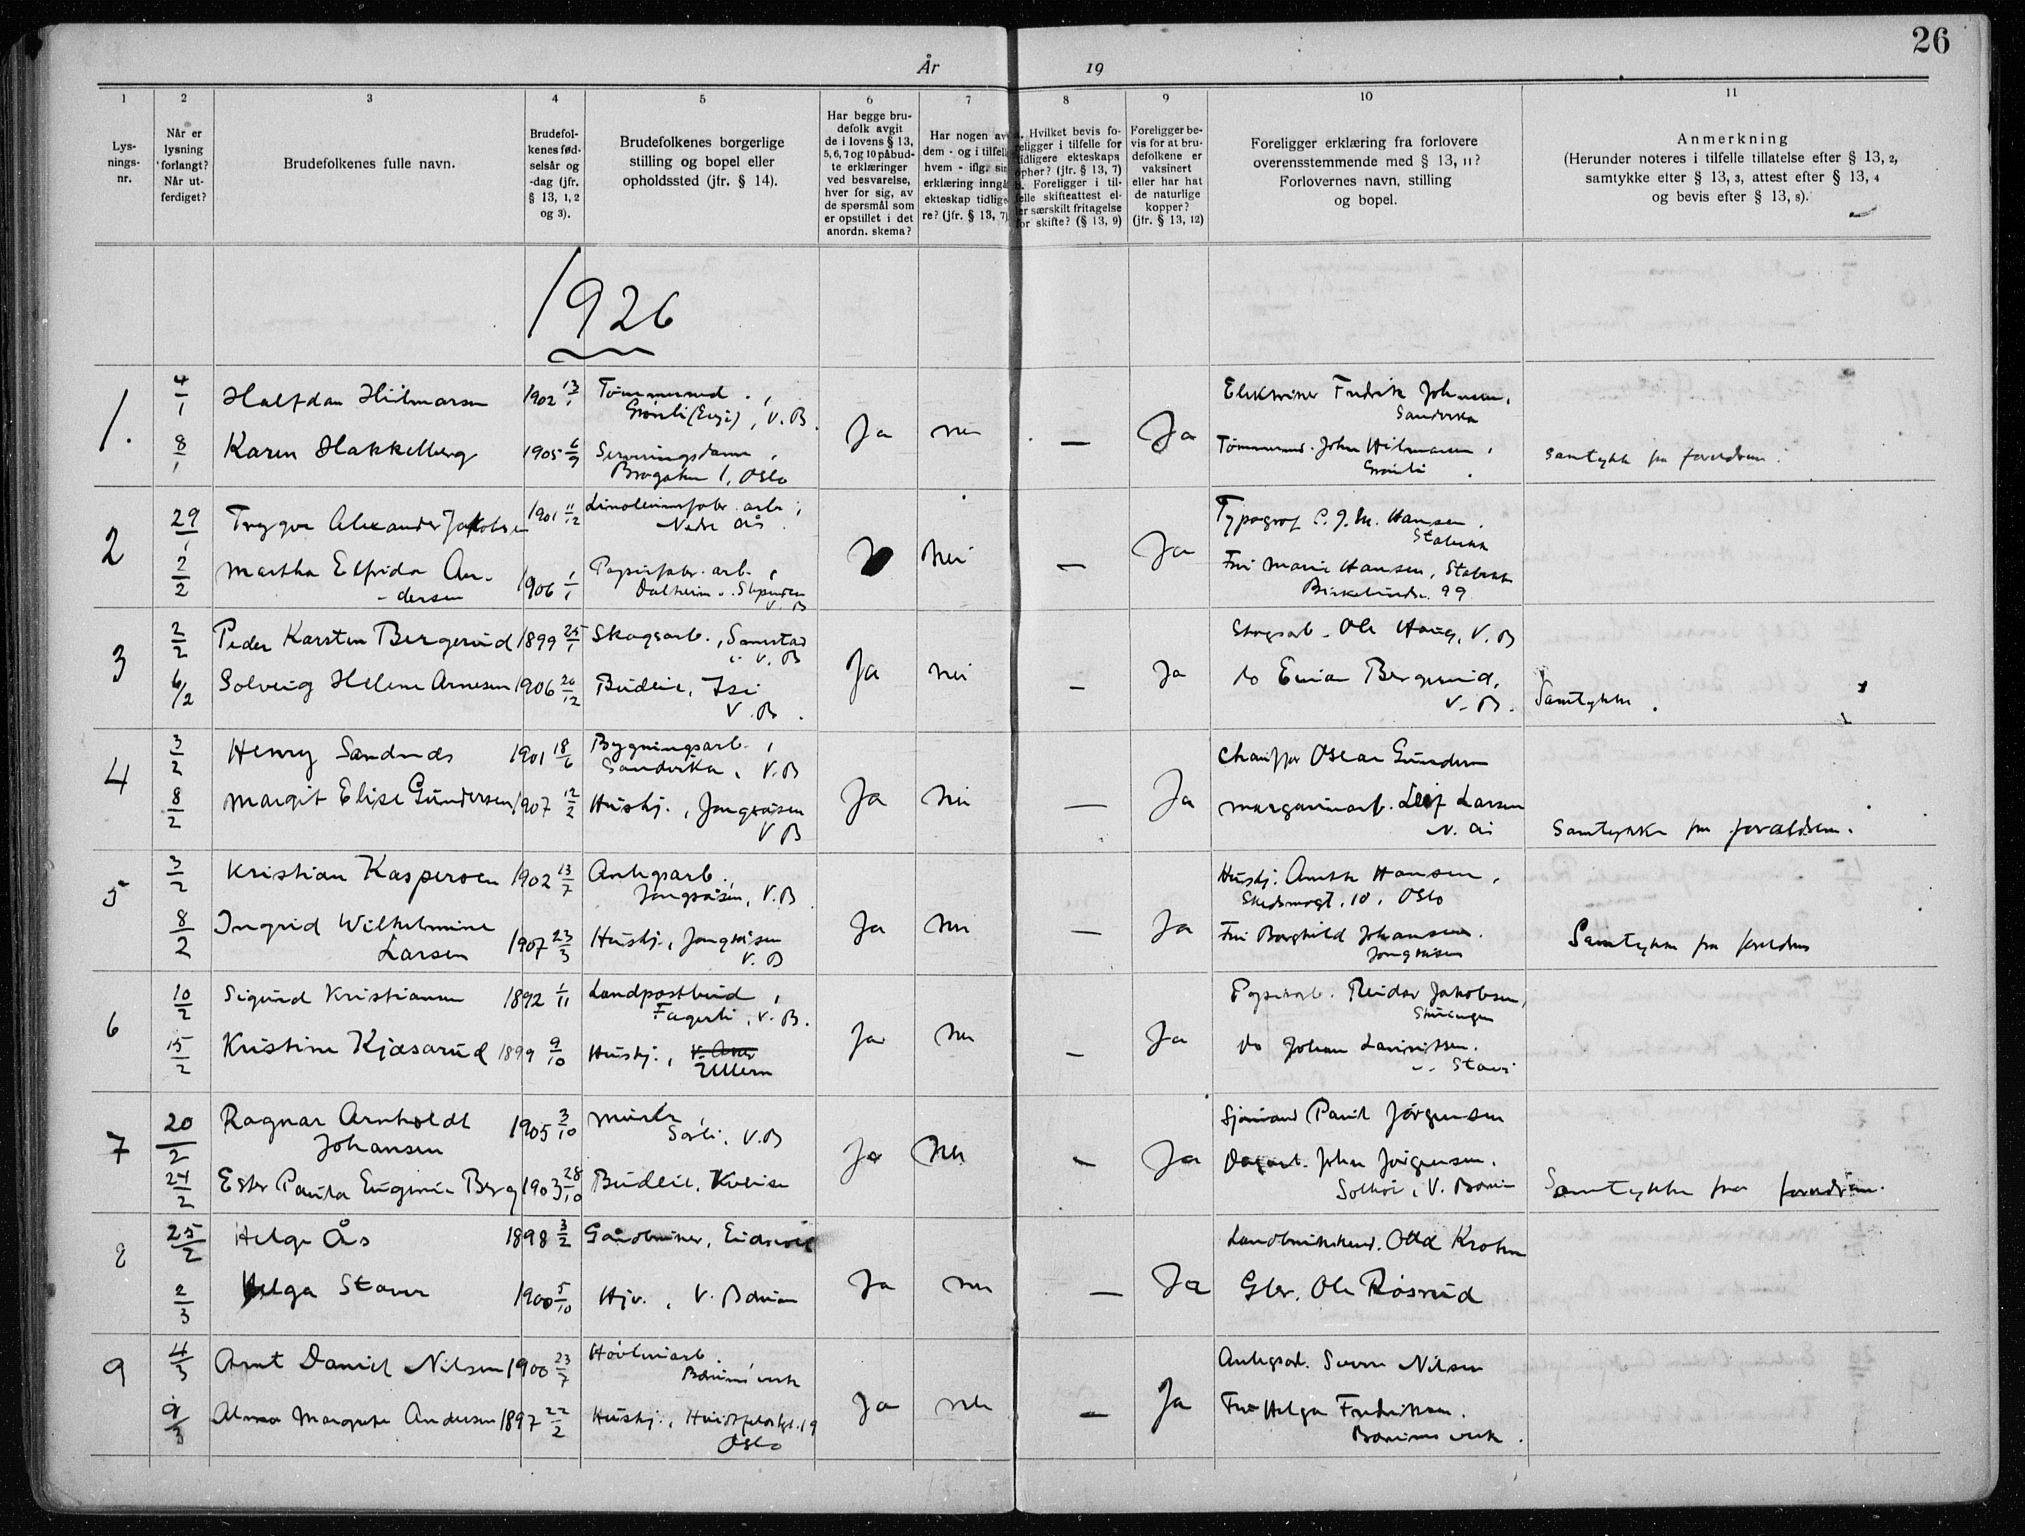 26
År 19
1 2 3 4 5 6 7 8 9 10 11
Lys-
nings-
nr.
Når er
lysning
forlangt?
Når ut-
ferdiget?
Brudefolkenes fulle navn.
Brudefol-
kenes fød-
selsår og
-dag (jfr.
§ 13, 1, 2
og 3).
Brudefolkenes borgerlige
stilling og bopel eller
opholdssted (jfr. § 14).
Har begge bru-
defolk avgit
de i lovens § 13,
5, 6, 7 og 10 påbud-
te erklæringer
ved besvarelse,
hver for sig, av
de spørsmål som
er opstillet i det
anordn. skema?
Har nogen av
dem - og i tilfelle
hvem - iflg. sin
erklæring inngå
ekteskap tidlige
re? (jfr. § 13, 7)
a. Hvilket bevis fo-
religger i tilfelle for
tidligere ekteskaps
ophør? (jfr. § 13, 7)
b. Foreligger i til-
felle skifteattest el-
ler særskilt fritagelse
for skifte? (§ 13, 9)
Foreligger be-
vis for at bru-
defolkene er
vaksinert
eller har hat
de naturlige
kopper?
(jfr. § 13, 12)
Foreligger erklæring fra forlovere
overensstemmende med § 13, 11?
Forlovernes navn, stilling
og bopel.
Anmerkning
(Herunder noteres i tilfelle tillatelse efter § 13, 2,
samtykke efter § 13, 3, attest efter § 13, 4
og bevis efter § 13, 8).
1926
1. 4/1 Halfdan Hilmarsen 1902 13/1 Tømmermand, Elektriker Fredrik Johnsen,
Grønli (Evje), V. B. Sandvika
Ja nei — Ja
8/1 Karen Hakkelberg 1905 6/9 Serveringsdame, Tømmermand. John Hilmarsen, Samtykke fra foreldrene.
Brogaten 1, Oslo Grønli.
2 29/1 Trygve Alexander Jakobsen 1901 11/12 Linoleumsfabr. arb., Typograf C. J. M. Hansen,
Nedre Ås. Stabekk
J nei — Ja
2/2 Martha Elfrida An- 1906 1/1 Papirfabr. arb., Fru Marie Hansen, Stabekk
dersen Dalheim, Slependen Birkelundsv. 99
V. B
3 2/2 Peder Karsten Bergerud 1899 25/1 Skogsarb., Skogsarb. Ole Haug, V. B
V. B
Ja nei — Ja
6/2 Solveig Helene Arnesen 1906 26/12 Budeie, Isi do Einar Bergerud, Samtykke.
V. B. V. B.
4 3/2 Henry Sandnes 1901 18/6 Bygningsarb., Chauffør Oscar Gundersen
Sandvika, V. B
Ja nei — Ja
8/2 Margit Elise Gundersen 1907 12/2 Hushj., Jongsåsen Margarinarb. Leif Larsen
V B N. Ås Samtykke fra forældrene.
5 3/2 Kristian Kaspersen 1902 13/7 Anlegsarb., Hushj. Hansen,
Jongsåsen, V. B Skedsmogt. 10, Oslo
Ja nei — Ja
8/2 Ingrid Wilhelmine Hushj., Jongsåsen Fru Borghild Johansen. Samtykke fra foreldrene
Larsen 1907 23/3 V. B Jongsåsen
6 10/2 Sigurd Kristiansen 1892 1/11 Landpostbud, Papirarb. Reidar Jakobsen,
Fagerli, V. B.
Ja nei — Ja
15/2 Kristine Kjæsarud 1899 9/10 Hushj., V. Aker do Johan Lauritsen.
Ullern
7 20/2 Ragnar Arnholdt 1905 3/10 Murer, Sjømand Paul Jørgensen
Johansen V. B
Ja Nei — Ja
24/2 Ester Paula Eugenie Berg 1903 28/10 Budeie, Dagarb. John Jørgensen.
V. Bærum Samtykke fra foreldrene.
8 25/2 Helge Ås 1898 3/2 Gårdbruker, Eidsvoll Otto Krohn
Ja nei — Ja
2/3 Helga Staver 1900 5/10 Hjv., V. Bærum Gbr. Ole Røsrud
9 4/3 Arnt Daniel Nilsen 1900 23/7 Høvleriarb., Anlegsarb. Nilsen
Bærums verk
Ja nei — Ja
9/3 Alma Margrete Andersen 1897 22/2 Hushj., Fru Helga Fredriksen.
Oslo Bærums verk.